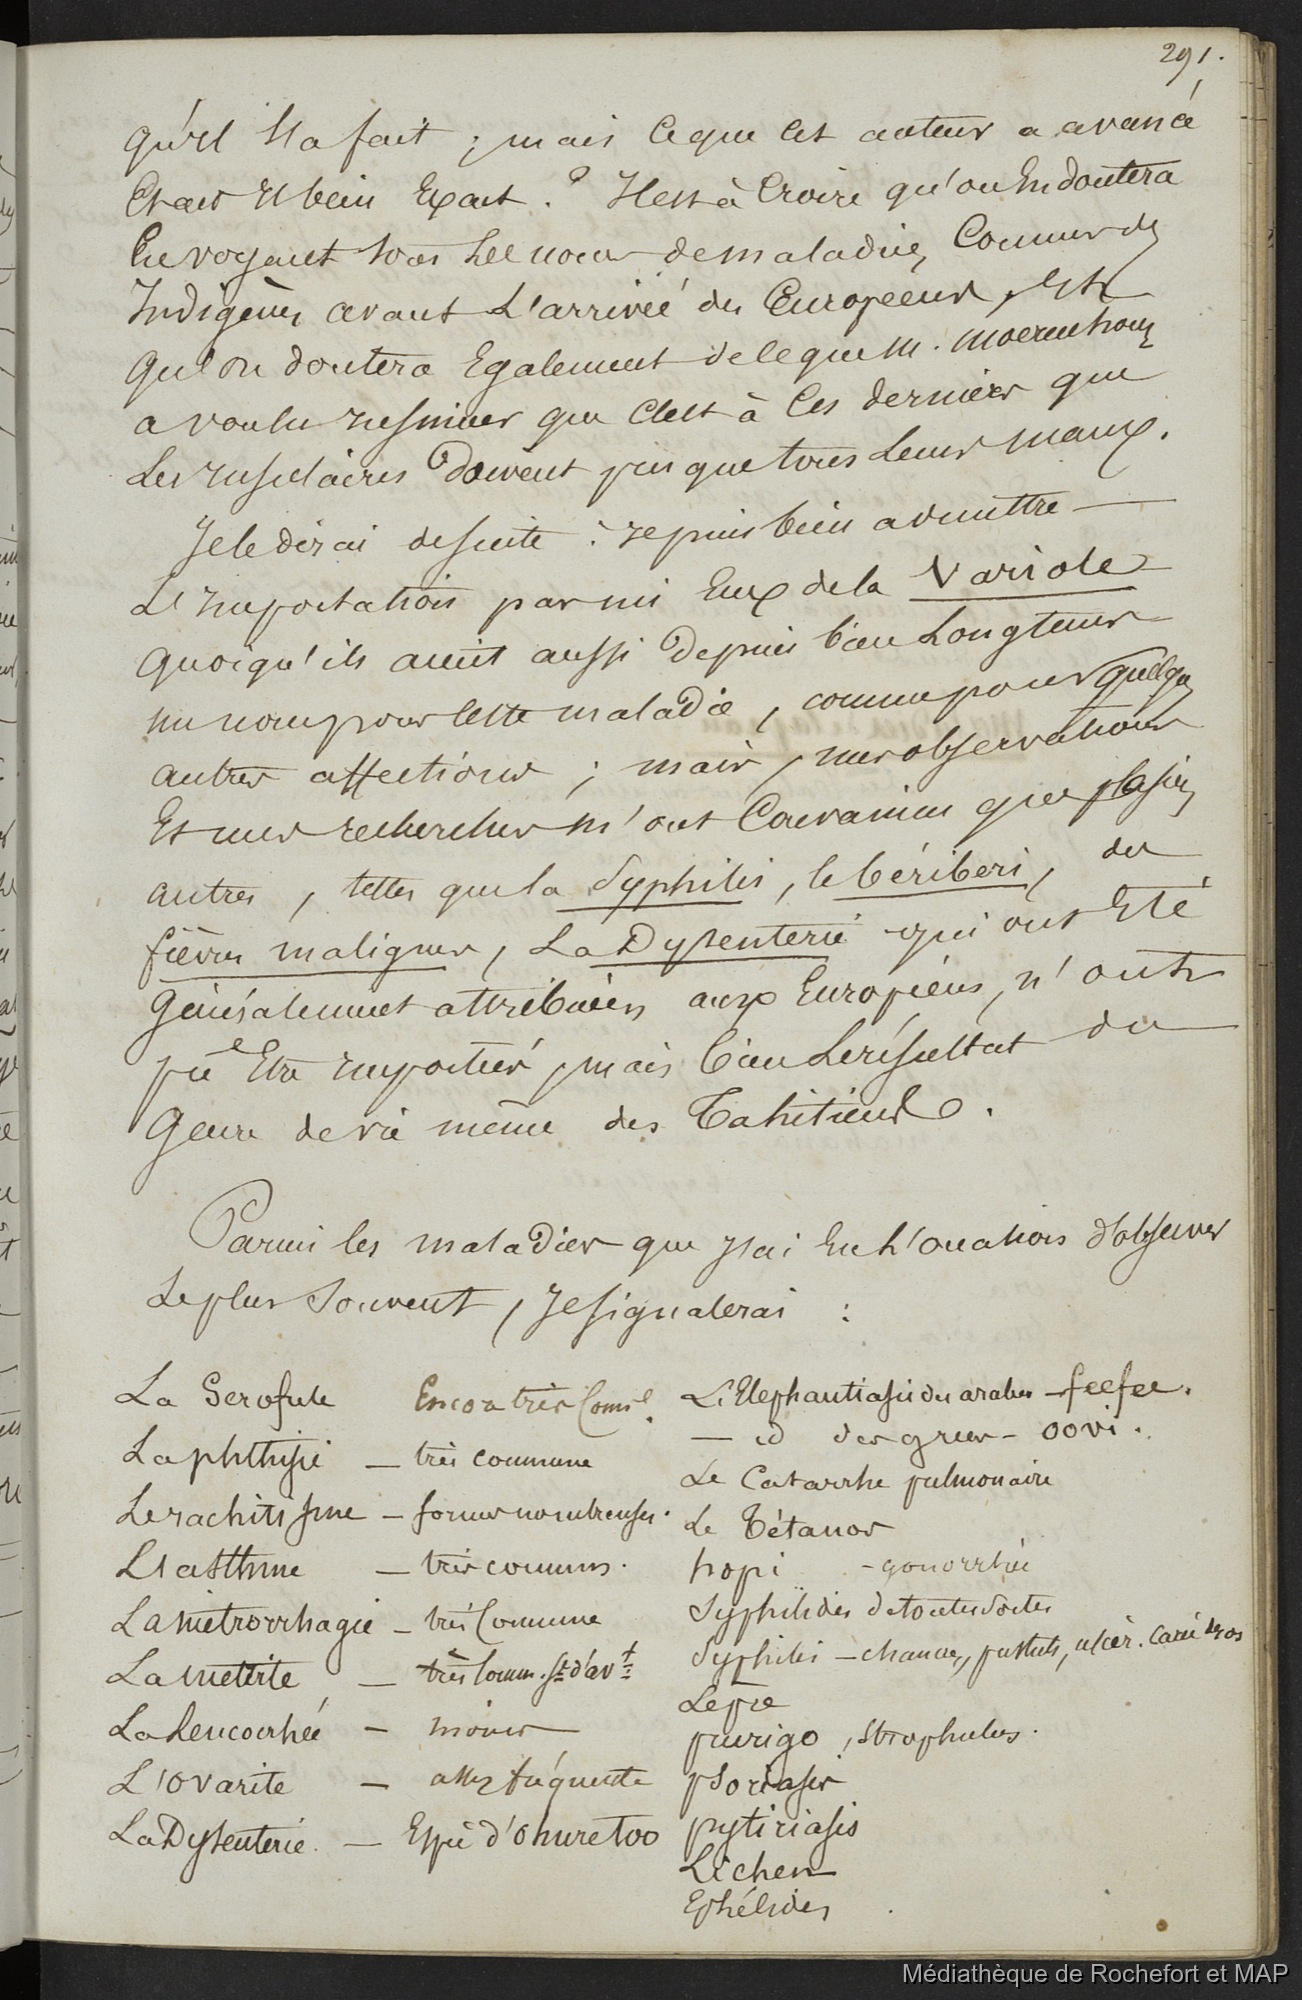 291.
qu'il l'a fait ; mais ce que cet auteur a avancé
est-il bien Exact ? Il est à croire qu'on En doutera
En voyant tous les noms de maladies, connus des
Indigènes avant L'arrivée des Européens, Et
qu'on doutera Egalement de ce que M. Moerenhout
a voulu insinuer que c'est à ces derniers que
Les insulaires doivent presque tous Leurs maux.
Je le dirai de suite : je puis bien admettre
L'importation parmi Eux de la Variole
quoiqu'ils aient aussi depuis bien Longtems
un nom pour cette maladie, comme pour quelques
autres affections ; mais, mes observations
Et mes recherches m'ont convaincu que plusieurs
autres, telles que la Syphilis, le béribéri, des
fièvres malignes, La Dysenterie qui ont Eté
généralement attribuées aux Européens, n'ont
pu Etre importées, mais bien Le résultat du
genre de vie même des Tahitiens.
Parmi les maladies que j'ai Eu L'occasion d'observer
Le plus souvent, je signalerai :
La Scrofule Encore très Comne.
La phthisie — très commune
Le rachitisme — formes nombreuses.
L'asthme — très commun.
La métrorrhagie — très Commune
La métrite — très Comm. St d'avt
La Leucorrhée — moins
L'ovarite — assez fréquente
La Dysenterie. — Espè d'ohure too
L'Elephantiasis des arabes — feefee.
— id des grecs — oovi.
Le Catarrhe pulmonaire
Le Tétanos
hopi — gonorrhée
Syphilides de toutes sortes
Syphilis — chancres, pustules, ulcèr. carie des os
Lèpre
prurigo, strophulus.
psoriasis
pytiriasis
Lichen
Ephélides
Médiathèque de Rochefort et MAP